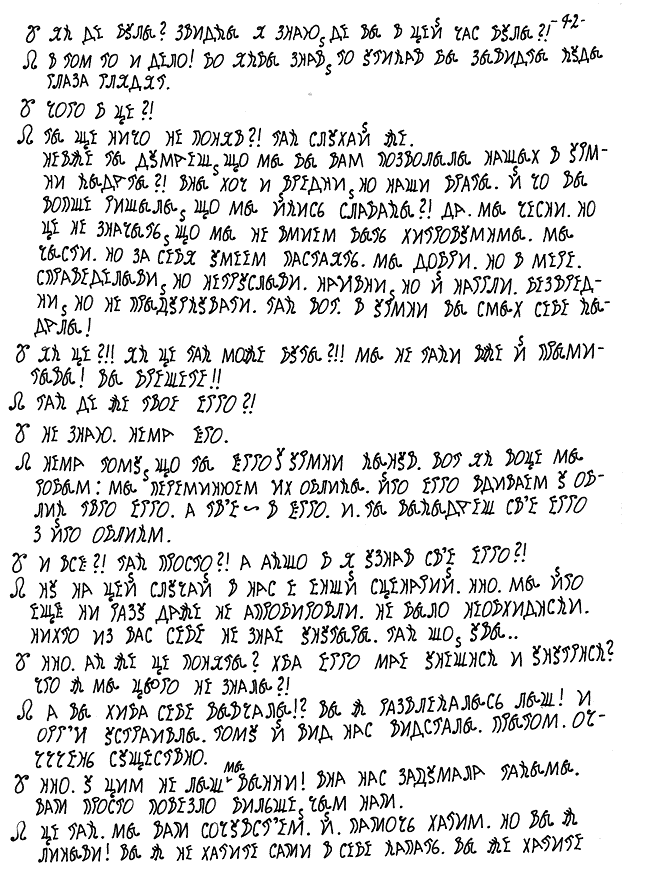 ♉ ЯК ДЕ БУЛЫ? ЗВИДКЫ Я ЗНАЮ, ДЕ ВЫ В ЦЕЙ ЧАС БУЛЫ?! -42-
♌ В ТОМ ТО И ДЕЛО! БО ЯКБЫ ЗНАВ, ТО УТИКАВ БЫ ЗЫВИДТЫ КУДЫ
ГЛАЗА ГЛЯДЯТ.
♉ ЧОГО В ЦЕ?!
♌ ТЫ ЩЕ НИЧО НЕ ПОНЯВ?! ТАК СЛУХАЙ ЖЕ.
НЕВЖЕ ТЫ ДУМАЕШ, ЩО МЫ БЫ ВАМ ПОЗВОЛЫЛЫ НАШЫХ В УТМ-
НИ КЫДАТЫ?! ВНЫ ХОЧ И ВРЕДНИ, НО НАШИ БРАТЫ. Й ЧО ВЫ
ВОПШЕ РИШЫЛЫ, ЩО МЫ ЙКИСЬ СЛАБАКЫ?! ДА. МЫ ЧЕСНИ. НО
ЦЕ НЕ ЗНАЧЫТЬ, ЩО МЫ НЕ ВМИЕМ БЫТЬ ХИТРОВУМНМЫ. МЫ
ЧЫСТИ. НО ЗА СЕБЯ УМЕЕМ ПАСТАЯТЬ. МЫ ДОБРИ. НО В МЕРЕ.
СПРАВЕДЕЛЫВИ, НО НЕТРУСЛЫВИ. НАИВНИ, НО Й НАГЛИ. БЕЗВРЕД-
НИ, НО НЕ ПРЫДУРКУВАТИ. ТАК ВОТ. В УТМНИ ВЫ СМЫХ СЕБЕ КЫ-
ДАЛЫ!
♉ ЯК ЦЕ?!! ЯК ЦЕ ТАК МОЖЕ БУТЫ?!! МЫ НЕ ТАКИ ВЖЕ Й ПРЫМИ-
ТЫВЫ! ВЫ БРЕШЕТЕ!!
♌ ТАК ДЕ ЖЕ ТВОЕ ЕГГО?!
♉ НЕ ЗНАЮ. НЕМА ЕГО.
♌ НЕМА ТОМУ, ЩО ТЫ ЕГГО У УТМНИ КЫНУВ. ВОТ ЯК ВОЦЕ МЫ
РОБЫМ: МЫ ПЕРЕМИНЮЕМ ИХ ОБЛИКЫ. ЙГО ЕГГО ВДИВАЕМ У ОБ-
ЛИК ТВГО ЕГГО. А ТВ'Е ~ В ЕГГО. И. ТЫ ВЫКЫДАЕШ СВ'Е ЕГГО
З ЙГО ОБЛИКМ.
♉ И ВСЕ?! ТАК ПРОСТО?! А АКШО В Я УЗНАВ СВ'Е ЕГГО?!
♌ НУ НА ЦЕЙ СЛУЧАЙ В НАС Е ЕНШЙ СЦЕНАРИЙ. ННО. МЫ ЙГО
ЕЩЕ НИ РАЗУ ДАЖЕ НЕ АПРОБИРОВЛИ. НЕ БЫЛО НЕОБХИДНСКИ.
НИХТО ИЗ ВАС СЕБЕ НЕ ЗНАЕ УНУТРЫ. ТАК ШО, УВЫ..
♉ ННО. АК ЖЕ ЦЕ ПОНЯТЫ? ХБА ЕГГО МАЕ УНЕШНСК И УНУТРНСК?
ЧГО Ж МЫ ЦЬОГО НЕ ЗНАЛЫ?!
♌ А ВЫ ХИБА СЕБЕ ВЫВЧАЛЫ!? ВЫ Ж РАЗВЛЕКАЛЫСЬ ЛЫШ! И
ОРГ'И УСТРАИВЛЫ. ТОМУ Й ВИД НАС ВИДСТАЛЫ. ПРЫТОМ. ОЧ-
ЧЧЧЕНЬ СУЩЕСТВНО.
♉ ННО. У ЦИМ НЕ ЛЫШ МЫ ВЫННИ! ВНЫ НАС ЗАДУМАЛА ТАКЫМЫ.
ВАМ ПРОСТО ПОВЕЗЛО БИЛЬШЕ, ЧЫМ НАМ.
♌ ЦЕ ТАК. МЫ ВАМ СОЧУВСТ'ЕМ. Й. ПАМОЧЬ ХАТИМ. НО ВЫ Ж
ЛИНЫВИ! ВЫ Ж НЕ ХАТИТЕ САМИ В СЕБЕ КАПАТЬ. ВЫ ЖЕ ХАТИТЕ